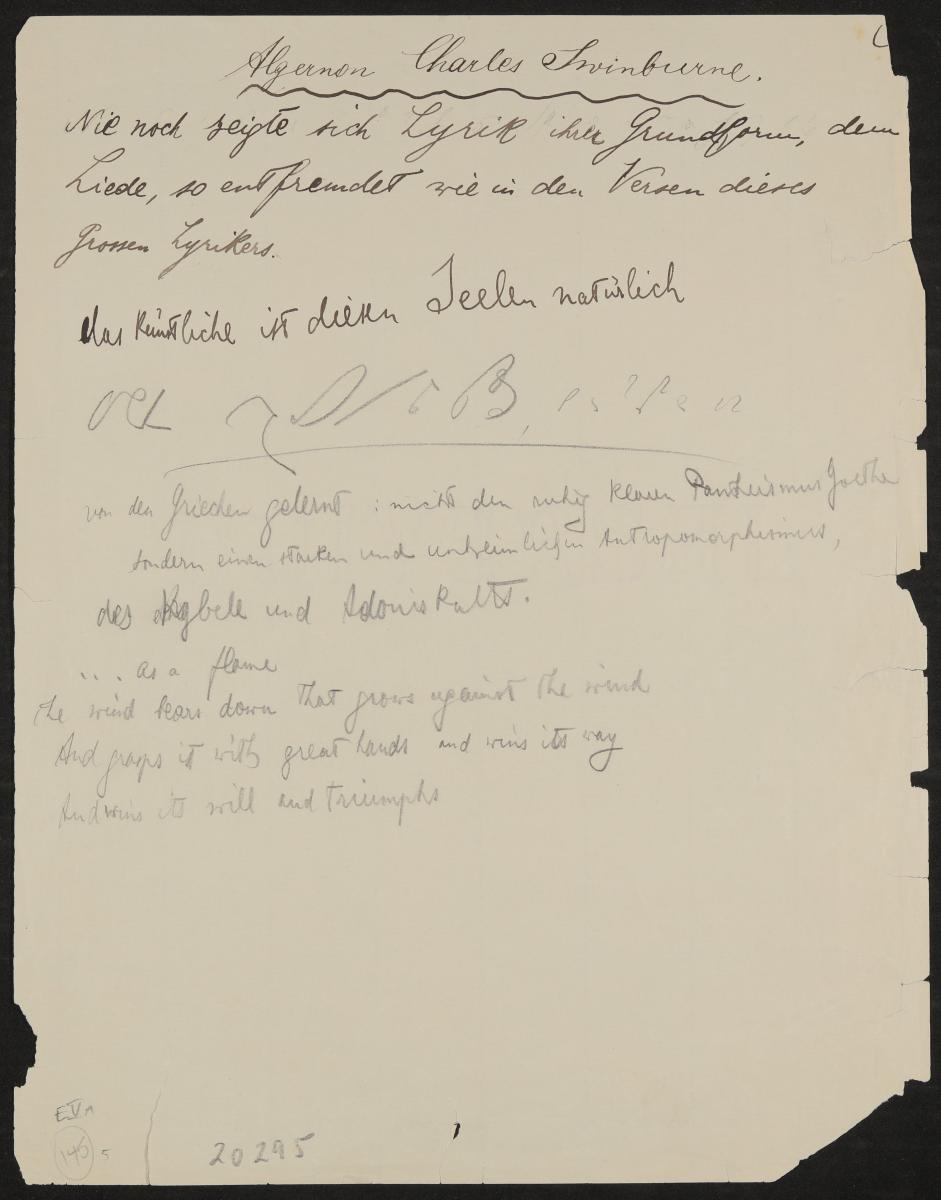 Algernon Charles Swinburne.
Nie noch zeigte sich Lyrik ihrer Grundform, dem
Liede, so entfremdet wie in den Versen dieses
Grossen Lyrikers.
das Künstliche ist diesen Seelen natürlich
von den Griechen gelernt : nicht den ruhig klaren Pantheismus Goethe
sondern einen starken und unheimlichen Antropomorphismus,
des Kybele und Adonis Kults.
... as a flame
the wind bears down that grows against the wind
And grasps it with great hands and wins its way
And wins its will and triumphs
E V
146 5
20295